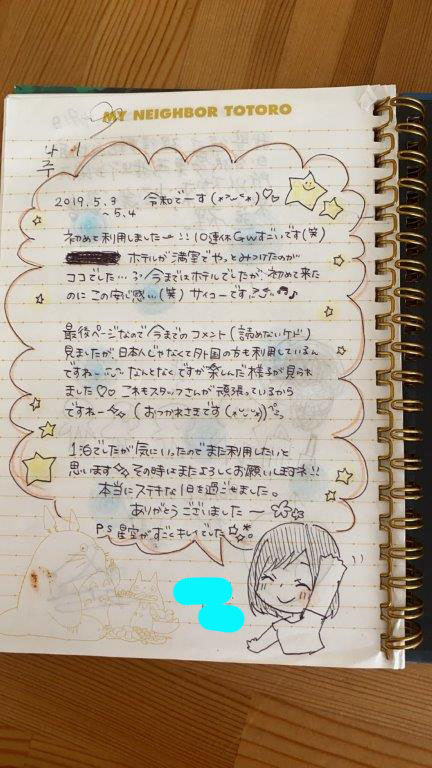 MY NEIGHBOR TOTORO
2019.5.3 令和でーす
~5.4
初めて利用しましたー!!10連休GWすごいです(笑)
ホテルが満室でやっとみつけたのが
ココでした…今まではホテルでしたが、初めて来た
のにこの安心感…(笑)サイコーです
最後ページなので今までのコメント(読めないケド)
見ましたが、日本人じゃなくて外国の方も利用しているん
ですねー なんとなくですが楽しんだ様子が見られ
ました♡♡これもスタッフさんが頑張っているから
ですねー (おつかれさまです
1泊でしたが気にいったのでまた利用したいと
思います その時はまたよろしくお願いしますネ!!
本当にステキな1日を過ごせました。
ありがとうございました〜
PS 星空がすごくキレイでした